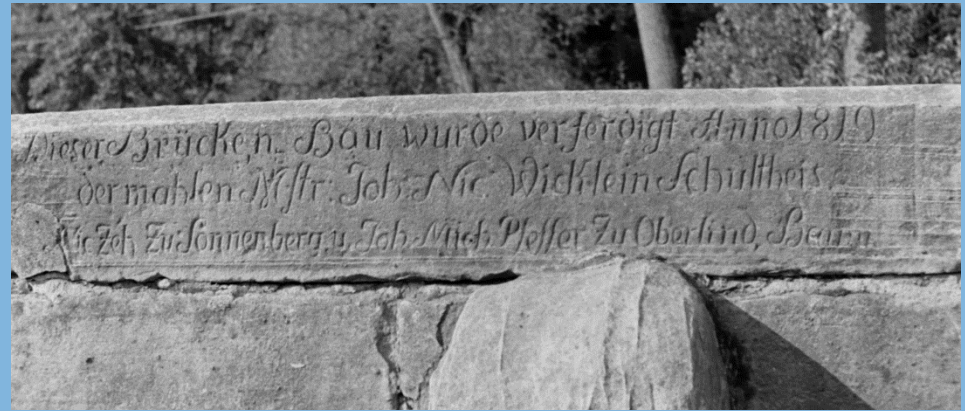 Dieser Brücken Bau wurde verferdigt Anno 1819
der mahlen Mstr: Joh: Nic: Wicklein Schultheis.
Nic Zeh Zu Sonnenberg, u, Joh Mich Pfeffer Zu Oberlind,